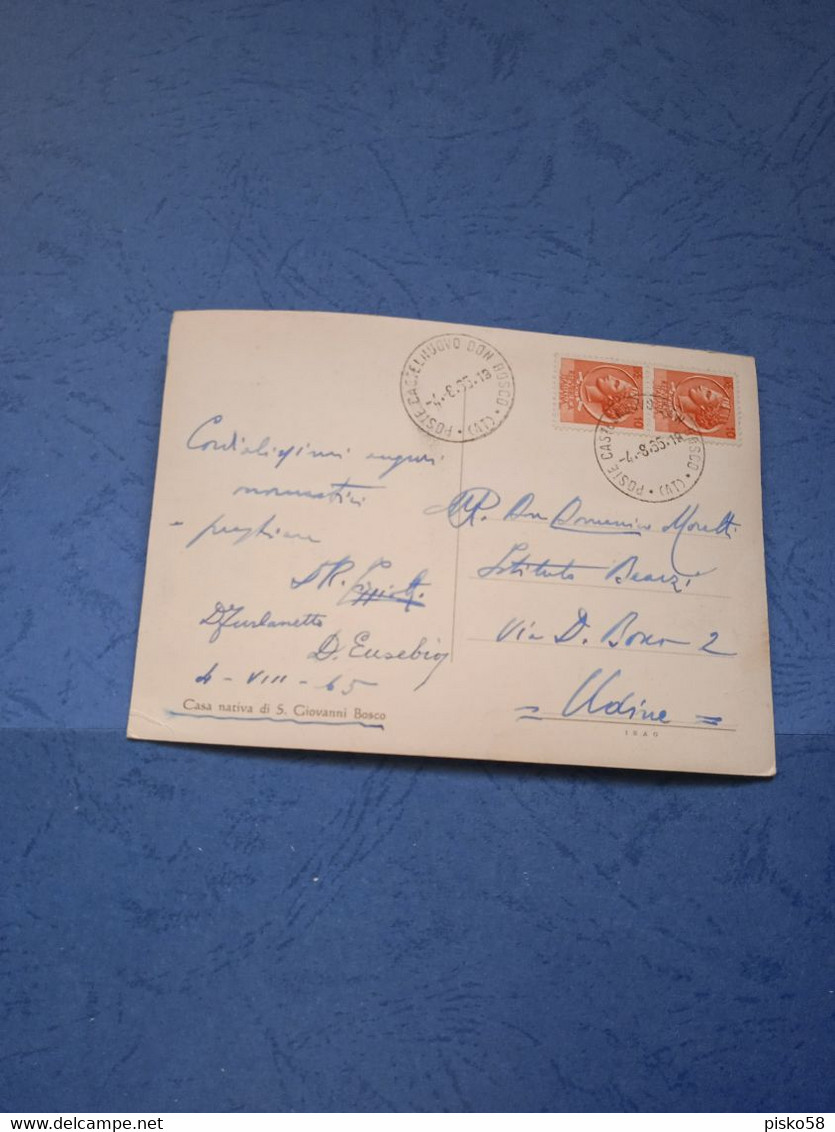 POSTE CASTELNUOVO DON BOSCO • (TV) •
-4.-8.65-19
-4.-8.65-19
Cordialissimi auguri
onomastici
e preghiere
D. Furlanetto
D. Eusebio
4 - VIII - 65
Casa nativa di S. Giovanni Bosco
M.R. Don Domenico Moretti
Istituto Bearzi
Via D. Bosco 2
= Udine =
ISAG
delcampe.net
pisko58